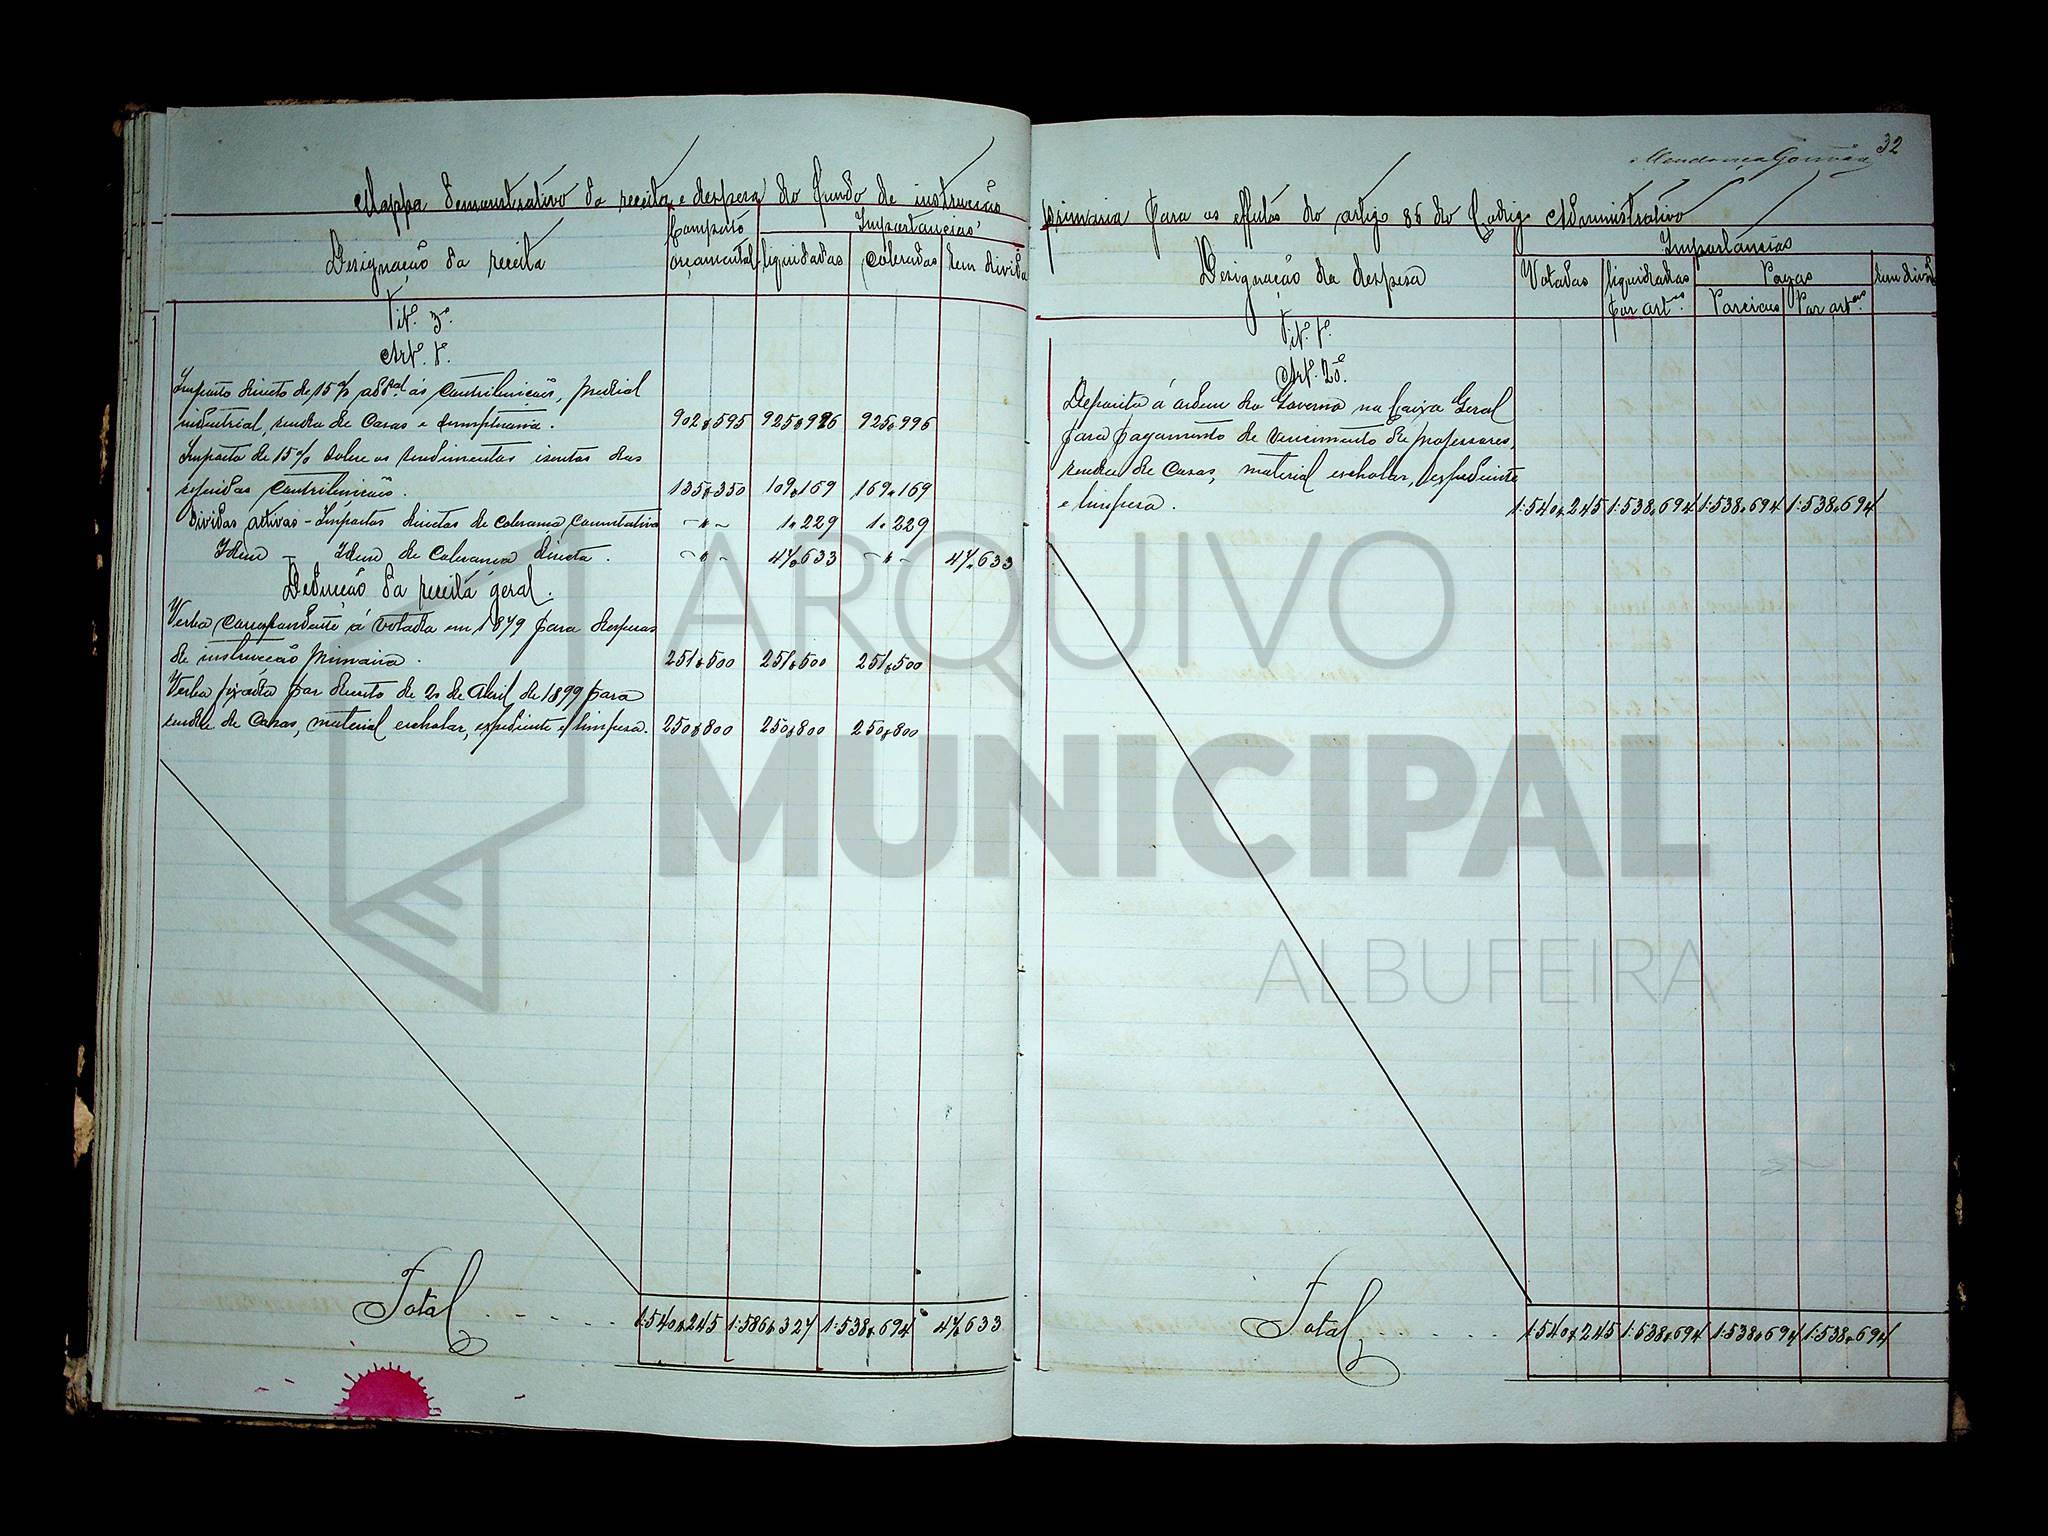 32
Mendonça Gouvêa
Mappa demonstrativo da receita e despesa do fundo de instrucção
primaria para os effeitos do artigo 86 do Codigo Administrativo
Designação da receita
Computo orçamental
Importancias
liquidadas
Cobradas
Em divida
Tit.º 3.º
Art.º 1.º
Imposto directo de 15% add.al ás contribuições, predial
industrial, renda de casas e sumptuaria. 902$595 925$996 925$996
Imposto de 15% sobre os rendimentos isentos das
referidas contribuições. 135$350 109$169 109$169
Dividas activas - Impostos directos de cobrança 1$229 1$229
Idem Idem de cobrança directa. 47$633 47$633
Deducção da receita geral.
Verba correspondente á votada em 1879 para despesas
de instrucção primaria. 251$500 251$500 251$500
Verba fixada por decreto de 20 de Abril de 1899 para
rendas de casas, material escholar, expediente e limpesa. 250$800 250$800 250$800
Total 1:540$245 1:586$327 1:538$694 47$633
Designação da despesa
Importancias
Votadas
liquidadas por art.os
Pagas
Parciaes
Por art.os
Em divida
Tit.º 1.º
Art.º 20.º
Deposito á ordem do Governo na Caixa Geral
para pagamento de vencimento de professores,
rendas de casas, material escholar, expediente
e limpesa. 1:540$245 1:538$694 1:538$694 1:538$694
Total 1:540$245 1:538$694 1:538$694 1:538$694
ARQUIVO
MUNICIPAL
ALBUFEIRA